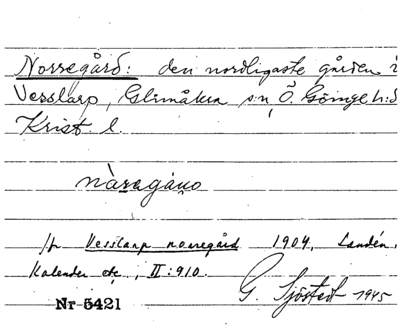 Norregård: den nordligaste gården i
Vesslarp, Glimåkra sn, Ö. Göinge h:d
Krist. l.
nàragáṇo
jfr Vesslarp norregård 1904, Landén,
Kalender etc., II:910.
G. Sjöstedt 1945
Nr 5421